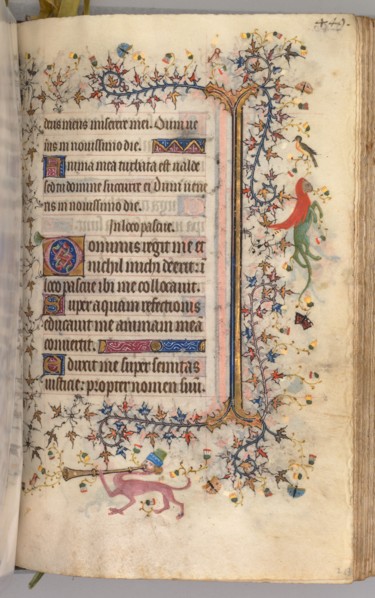 deus meus miserere mei. Dum ve
nis in novissimo die.
Anima mea turbata est valde
sed tu domine succurre ei Dum vene
ris in novissimo die.
In loco pascue.
Dominus regit me et
nichil michi deerit: i
loco pascue ibi me collocavit.
Super aquam refectionis
educavit me animam meā
convertit.
Deduxit me super semitas
iusticie: propter nomen suū.